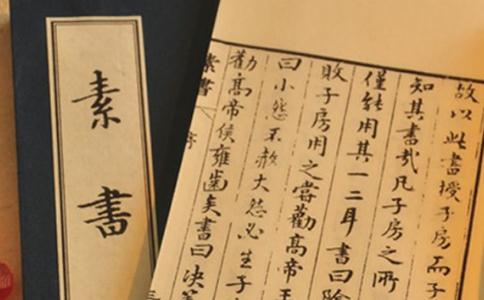 素書
故以此書授子房而子
知其書哉凡子房之所
僅能用其一二耳書曰陰
敗子房用之嘗勸高帝王
曰小怨不赦大怨必生子
勸高帝侯雍齒矣書曰決策
素書 序